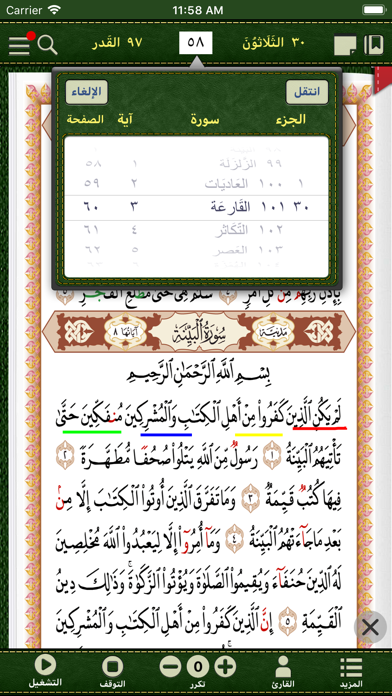 Carrier 11:58 AM
٣٠ الثَلَاثُونَ ٥٨ ٩٧ القَدر
انتقل الإلغاء
الجزء سورة آية الصفحة
٩٩ الزَلزَلة ١ ٥٨
١ ١٠٠ العَاديَات ٢ ٥٩
٣٠ ١٠١ القَارعَة ٣ ٦٠
١٠٢ التَّكَاثُر ٤ ٦١
١٠٣ العَصر ٥ ٦٢
بِإِذۡنِ رَبِّهِم مِّن كُلِّ أَمۡرٖ ٤ سَلَٰمٌ هِيَ حَتَّىٰ مَطۡلَعِ ٱلۡفَجۡرِ ٥
مَدَنِيَّة سُورَةُ ٱلۡبَيِّنَةِ آيَاتُهَا ٨
بِسۡمِ ٱللَّهِ ٱلرَّحۡمَٰنِ ٱلرَّحِيمِ
لَمۡ يَكُنِ ٱلَّذِينَ كَفَرُواْ مِنۡ أَهۡلِ ٱلۡكِتَٰبِ وَٱلۡمُشۡرِكِينَ مُنفَكِّينَ حَتَّىٰ
تَأۡتِيَهُمُ ٱلۡبَيِّنَةُ ١ رَسُولٞ مِّنَ ٱللَّهِ يَتۡلُواْ صُحُفٗا مُّطَهَّرَةٗ ٢
فِيهَا كُتُبٞ قَيِّمَةٞ ٣ وَمَا تَفَرَّقَ ٱلَّذِينَ أُوتُواْ ٱلۡكِتَٰبَ إِلَّا مِنۢ
بَعۡدِ مَا جَآءَتۡهُمُ ٱلۡبَيِّنَةُ ٤ وَمَآ أُمِرُوٓاْ إِلَّا لِيَعۡبُدُواْ ٱللَّهَ مُخۡلِصِينَ
لَهُ ٱلدِّينَ حُنَفَآءَ وَيُقِيمُواْ ٱلصَّلَوٰةَ وَيُؤۡتُواْ ٱلزَّكَوٰةَۚ وَذَٰلِكَ دِينُ
ٱلۡقَيِّمَةِ ٥ إِنَّ ٱلَّذِينَ كَفَرُواْ مِنۡ أَهۡلِ ٱلۡكِتَٰبِ وَٱلۡمُشۡرِكِينَ
0
المزيد القارئ تكرر التوقف التشغيل